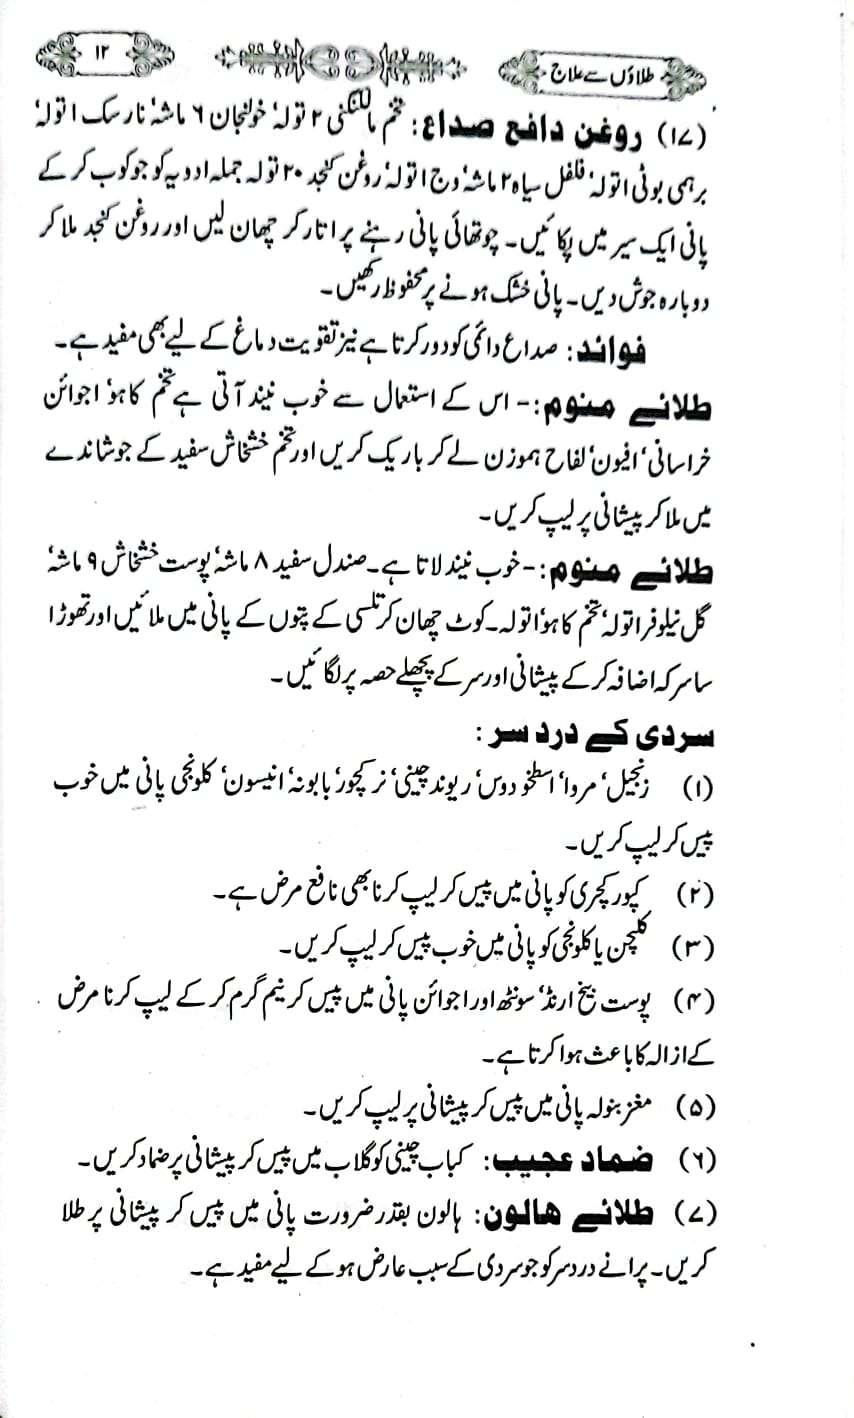 طلاؤں سے علاج
۱۲
(۱۷) روغن دافع صداع: تخم مالکنگنی ۲ تولہ' خولنجان ۶ ماشہ' نارسک ا تولہ'
برہمی بوٹی ا تولہ' فلفل سیاہ ۲ ماشہ' وج ا تولہ' روغن کنجد ۲۰ تولہ جملہ ادویہ کو جوکوب کر کے
پانی ایک سیر میں پکائیں۔ چوتھائی پانی رہنے پر اتار کر چھان لیں اور روغن کنجد ملا کر
دوبارہ جوش دیں۔ پانی خشک ہونے پر محفوظ رکھیں۔
فوائد: صداع دائمی کو دور کرتا ہے نیز تقویت دماغ کے لیے بھی مفید ہے۔
طلائے منوم:- اس کے استعمال سے خوب نیند آتی ہے تخم کاہو' اجوائن
خراسانی' افیون' لفاح ہموزن لے کر باریک کریں اور تخم خشخاش سفید کے جوشاندے
میں ملا کر پیشانی پر لیپ کریں۔
طلائے منوم:- خوب نیند لاتا ہے۔ صندل سفید ۸ ماشہ' پوست خشخاش ۹ ماشہ'
گل نیلوفر ا تولہ' تخم کاہو' ا تولہ۔ کوٹ چھان کر تلسی کے پتوں کے پانی میں ملائیں اور تھوڑا
سا سرکہ اضافہ کر کے پیشانی اور سر کے پچھلے حصہ پر لگائیں۔
سردی کے درد سر :
(۱) زنجبیل' مروا' اسطخودوس' ریوند چینی' نرکچور' بابونہ' انیسون' کلونجی پانی میں خوب
پیس کر لیپ کریں۔
(۲) کپور کچری کو پانی میں پیس کر لیپ کرنا بھی نافع مرض ہے۔
(۳) کلیجن یا کلونجی کو پانی میں خوب پیس کر لیپ کریں۔
(۴) پوست بیخ ارنڈ' سونٹھ اور اجوائن پانی میں پیس کر نیم گرم کر کے لیپ کرنا مرض
کے ازالہ کا باعث ہوا کرتا ہے۔
(۵) مغز بنولہ پانی میں پیس کر پیشانی پر لیپ کریں۔
(۶) ضماد عجیب: کباب چینی کو گلاب میں پیس کر پیشانی پر ضماد کریں۔
(۷) طلائے ھالون: ہالون بقدر ضرورت پانی میں پیس کر پیشانی پر طلا
کریں۔ پرانے درد سر کو جو سردی کے سبب عارض ہو کے لیے مفید ہے۔